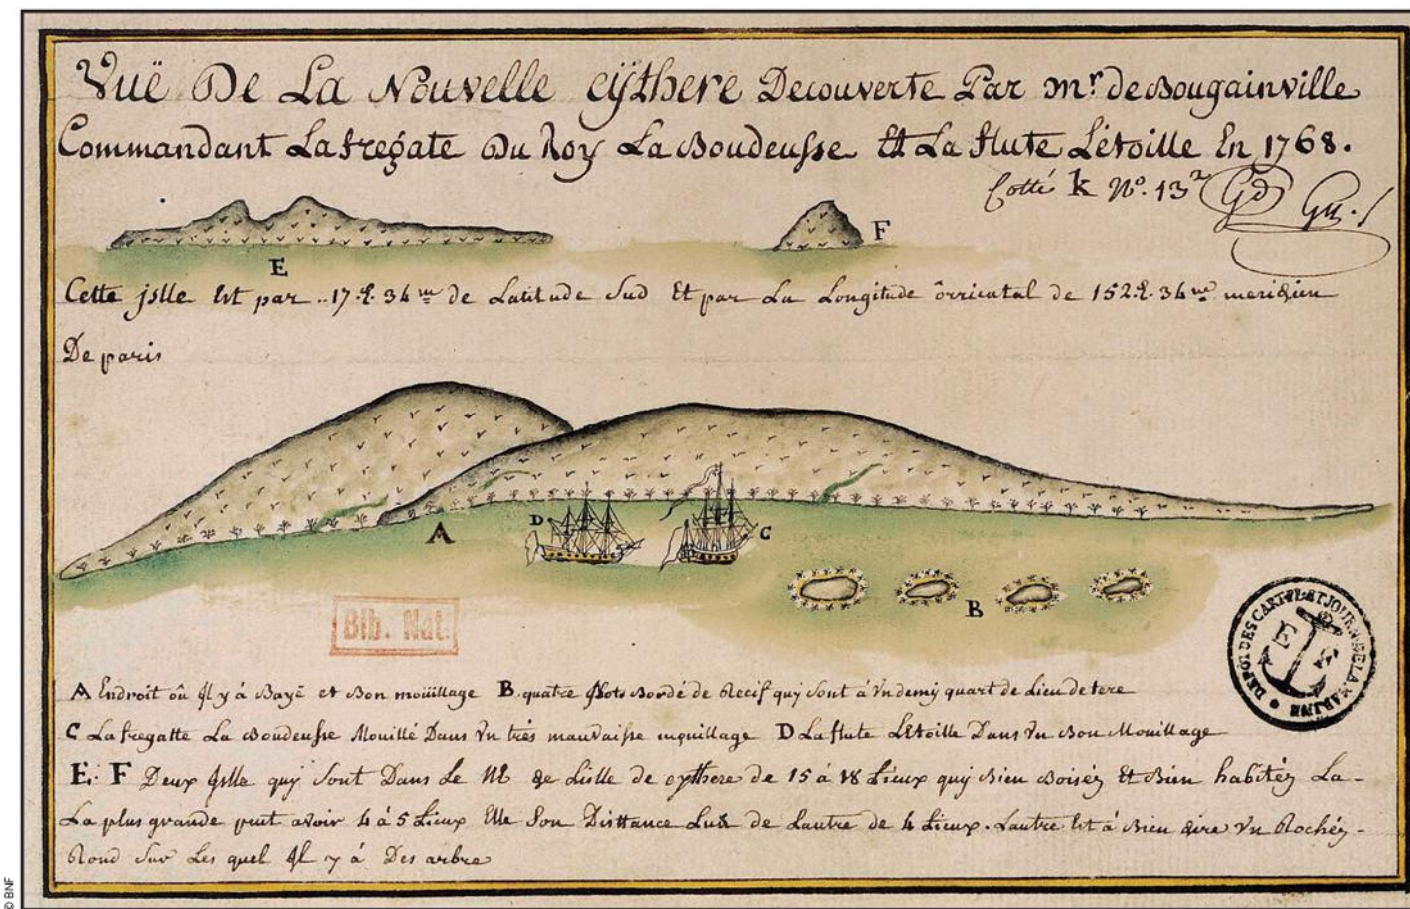 Vuë De La Nouvelle cÿthere Decouverte Par mr. de Bougainville
Commandant La fregate Du Roy La Boudeusse Et La flute Létoille En 1768.
Cotté k No. 13
E
F
Cette jslle Est par ..17.d. 34 me de Latitude Sud Et par La Longitude òrricatal de 152.d. 34 me meridien
De paris
A
D
C
B
Bib. Nat.
DÉPOT DES CARTES ET JOURN. DE LA MARINE
A Endroit oû Jl y á Bayē et Bon moüillage B. quatre Jlots Bordé de Recif quy sont á Vn demy quart de Lieu de tere
C La fregatte La Boudeusse Mouillé Dans Vn trés mauvaisse mouillage D La flute LEtoille Dans Vn Bon Mouillage
E. F Deux Jslle quy sont Dans Le de Lislle de cythere de 15 á 18 Lieux quy Bien Boiséz Et Bien habitéz La -
La plus grande peut avoir 4 á 5 Lieux Elle Son Disttance de Lautre de 4 Lieux. Lautre Est á Bien dire Vn Rochéz -
Rond Sur Les quel Jl y á Des arbre
© BNF